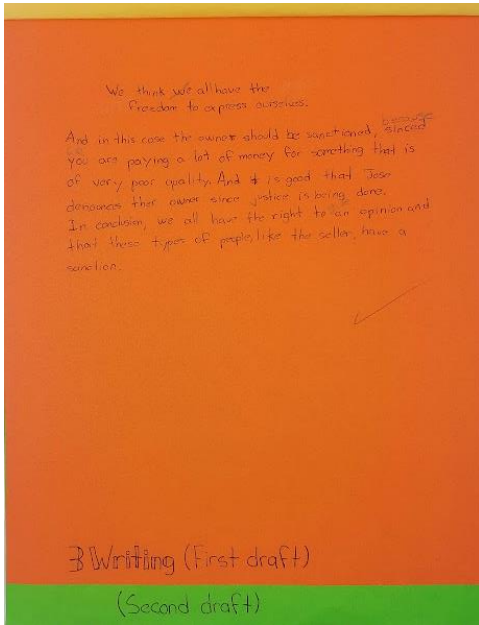 We think we all have the
freedom to express ourselves.
And in this case the owner should be sanctioned, because
you are paying a lot of money for something that is
of very poor quality. And it is good that Jose
denounces ther owner since justice is being done.
In conclusion, we all have the right to an opinion and
that these types of people, like the seller, have a
sanction.
3 Writing (First draft)
(Second draft)